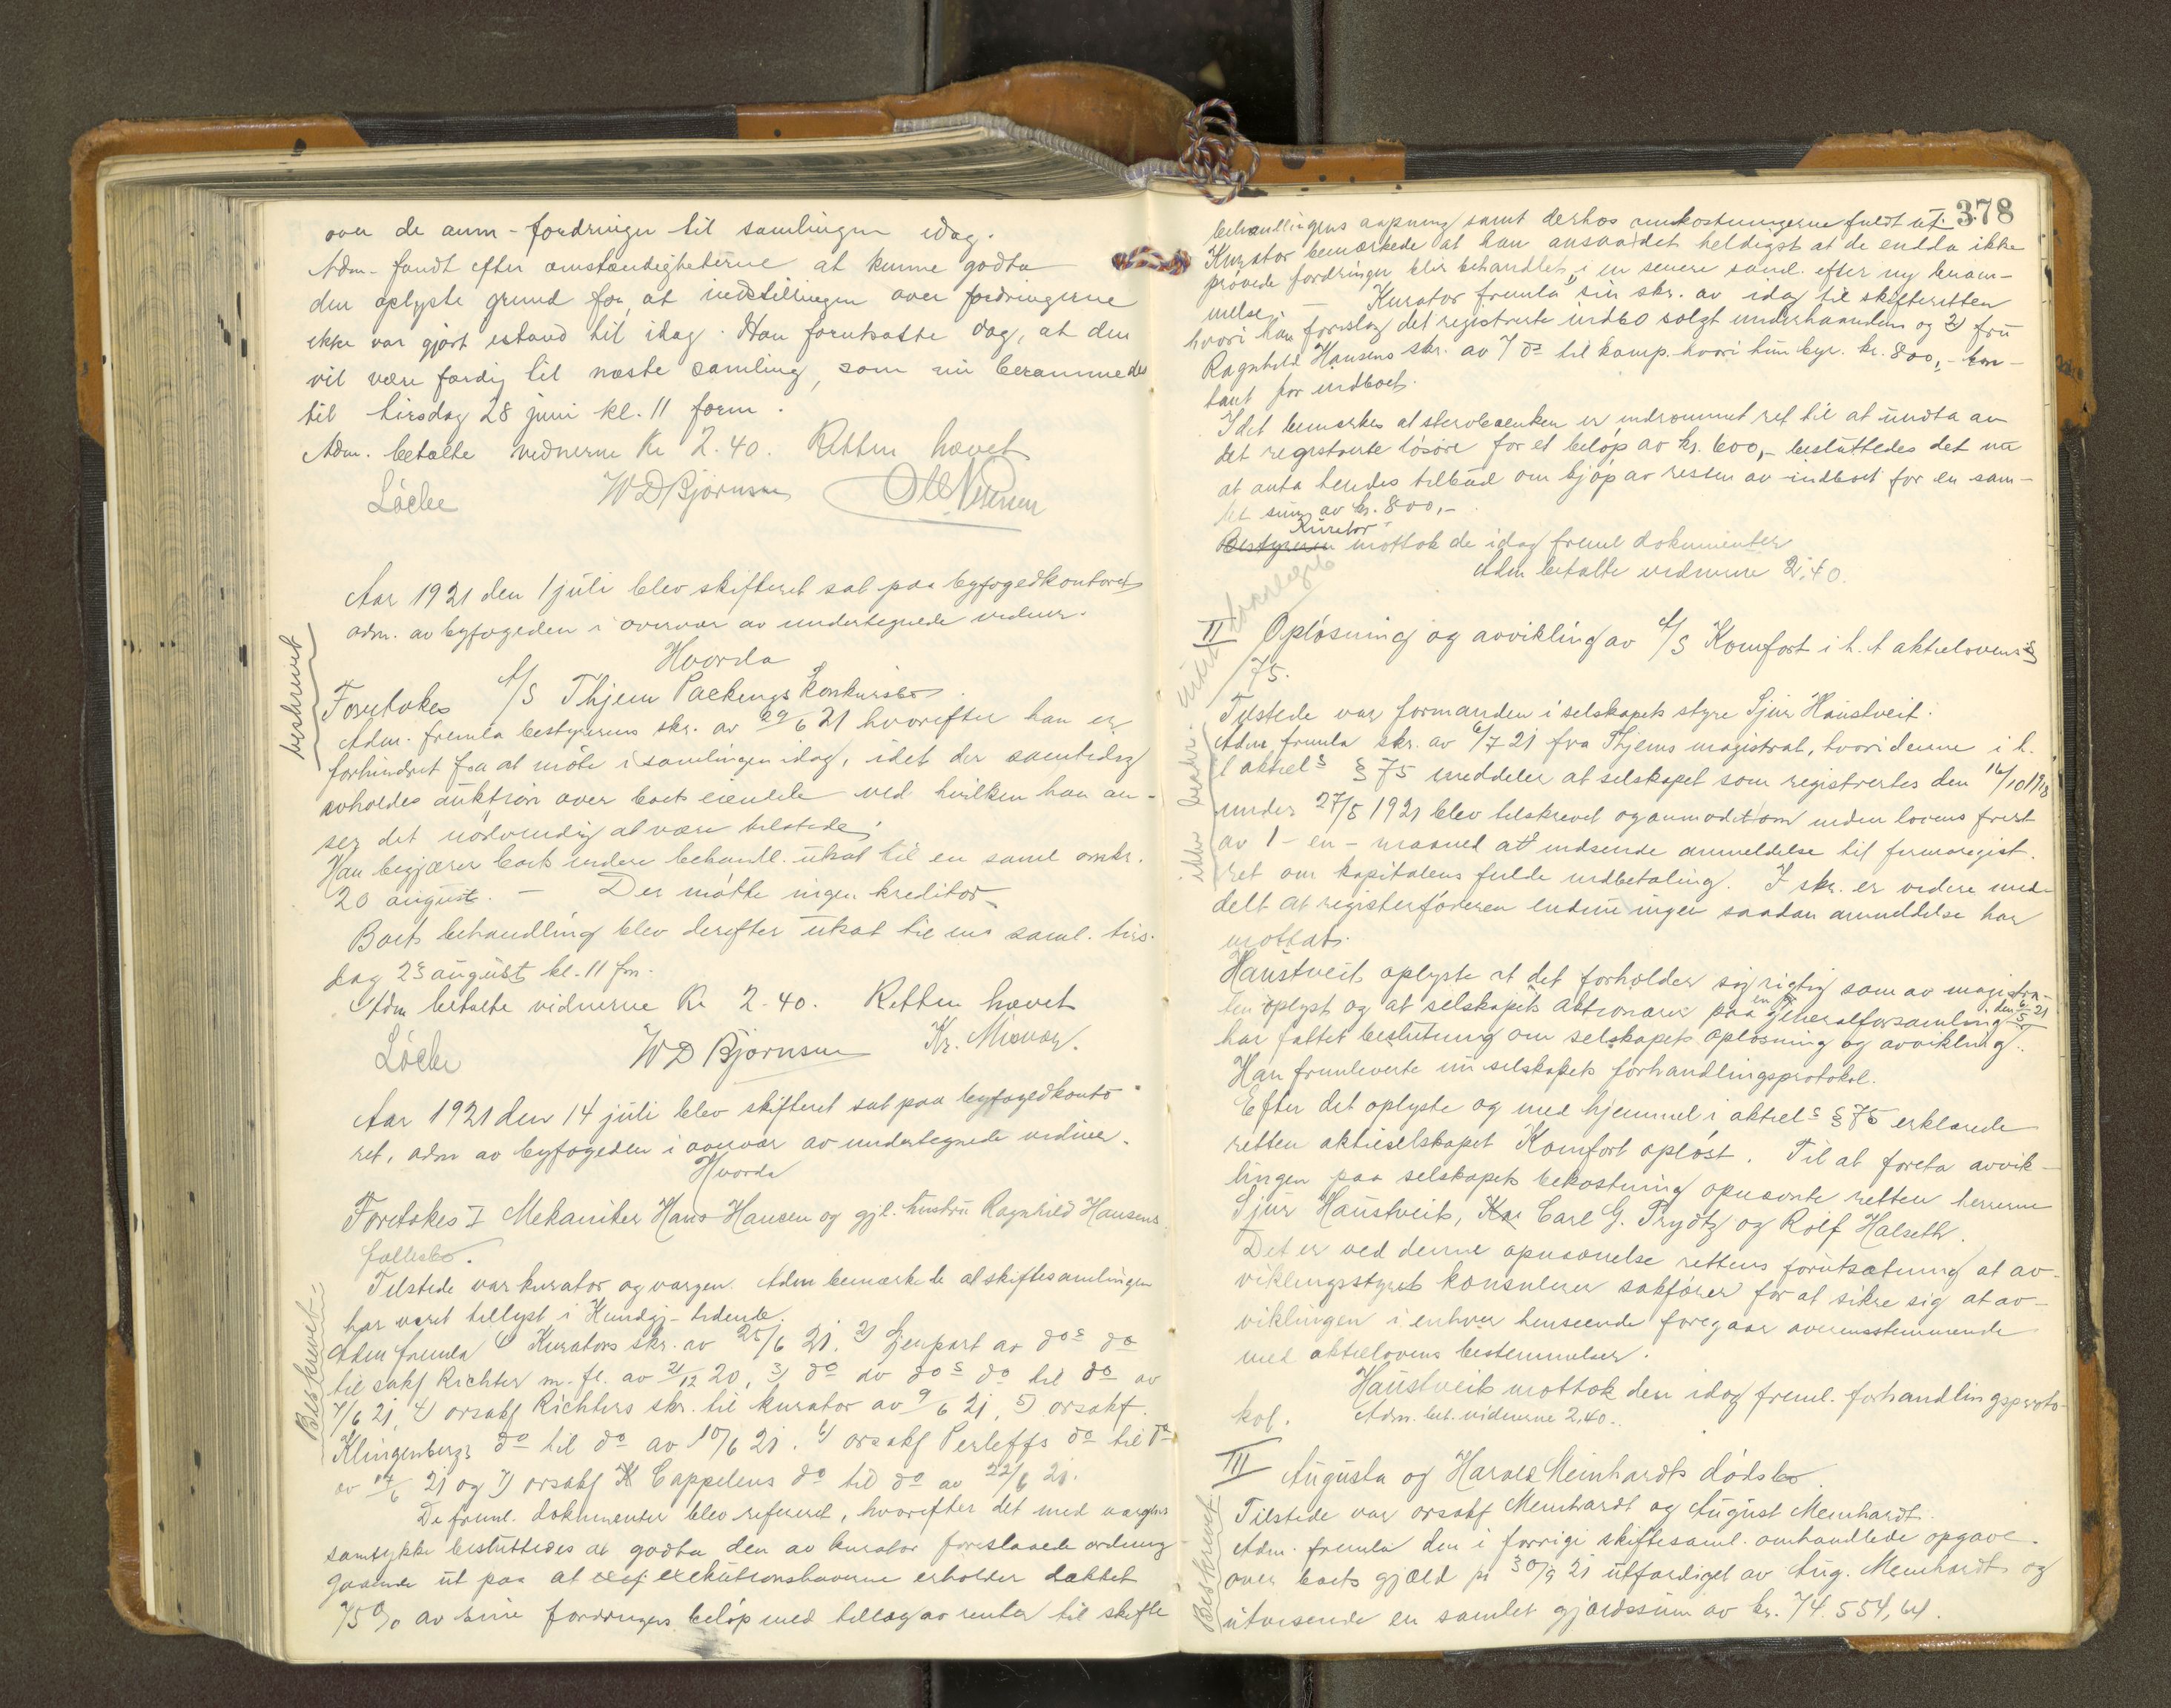 over de anm-fordringer til samlingen idag.
Adm. fandt efter omstændigheterne at kunne godta
den oplyste grund for at indstillingen over fordringerne
ikke var gjort istand til idag. Han forutsatte dog, at den
vil være færdig til næste samling, som nu berammedes
til tirsdag 28 juni kl. 11 form.
Adm. betalte vidnerne Kr 2.40. Retten hævet
Löcke W D Bjørnsen
Aar 1921 den 1 juli blev skifteret sat paa byfogedkontoret
adm. av byfogeden i overvær av undertegnede vidner.
Hvorda
beskrevet
Foretokes A/S Thjem Packings konkursbo.
Adm. fremla bestyrerens skr. av 29/6 21 hvorefter han er
forhindret fra at møte i samlingen idag, idet der samtidig
avholdes auktion over boets eiendele ved hvilken han an-
ser det nødvendig at være tilstede.
Han begjærer boets videre behandl. utsat til en saml omkr.
20 august. — Der møtte ingen kreditor
Boets behandling blev derefter utsat til ny saml. tirs-
dag 23 august kl. 11 fm.
Adm betalte vidnerne Kr 2.40. Retten hævet
Löcke W D Bjørnsen Kr.
Aar 1921 den 14 juli blev skifteret sat paa byfogedkonto-
ret, adm av byfogeden i overvær av undertegnede vidner.
Hvorda
Foretokes I Mekaniker Hans Hansen og gjl. hustru Ragnhild Hansens
fællesbo.
Beskrevet
Tilstede var kurator og vergen. Adm bemerkede at skiftesamlingen
har været tillyst i Kundgj-tidende.
Adm fremla 1) Kurators skr. av 25/6 21. 2) Gjenpart av dos do
til sakf Richter m. fl. av 21/12 20, 3) do av dos do til do av
7/6 21, 4) orsakf Richters skr. til kurator av 9/6 21, 5) orsakf.
Klingenbergs do til do av 10/6 21. 6) orsakf Perleffs do til do
av 14/6 21 og 7) orsakf K Cappelens do til do av 22/6 21.
De freml. dokumenter blev refereret, hvorefter det med vergens
samtykke besluttedes at godta den av kurator foreslaaede ordning
gaaende ut paa at exekutionshaverne erholder dækket
75 % av sine fordringers beløp med tillæg av renter til skifte
378
behandlingens aapning samt derhos omkostningerne fuldt ut.
Kurator bemærkede at han ansaa det heldigst at de endda ikke
prøvede fordringer blir behandlet i en senere saml. efter ny beram-
melse. — Kurator fremla 1) sin skr. av idag til skifteretten
hvori han foreslog det registrerte indbo solgt underhaanden og 2) fru
Ragnhild Hansens skr. av 7 ds til komp. hvori hun byr. kr. 800,- kon-
tant for indboet.
Idet bemerkes at sterboenken er indrømmet ret til at undta av
det registrerte løsøre for et beløp av kr. 600,- besluttedes det nu
at anta hendes tilbud om kjøp av resten av indboet for en sam-
let sum av kr. 800,-
Kurator
Bestyreren mottok de idag freml dokumenter
Adm betalte vidnerne 2,40.
II Opløsning og avvikling av A/S Komfort i h. t aktielovens §
75.
ikke beskr.
Tilstede var formanden i selskapets styre Sjur Haustveit.
Adm. fremla skr. av 6/7 21 fra Thjems magistrat, hvori denne i h.
t aktiels § 75 meddeler at selskapet som registrertes den 16/10 1918
under 27/5 1921 blev tilskrevet og anmodet om inden lovens frist
av 1 - en - maaned at indsende anmeldelse til firmaregist.
ret om kapitalens fulde indbetaling. I skr. er videre med-
delt at registerføreren endnu ingen saadan anmeldelse har
mottat.
Haustveit oplyste at det forholder sig rigtig som av magistra-
ten oplyst og at selskapets aktionærer paa en generalforsamling den 6/5 21
har fattet beslutning om selskapets opløsning og avvikling.
Han fremleverte nu selskapets forhandlingsprotokol.
Efter det oplyste og med hjemmel i aktiels § 75 erklærede
retten aktieselskapet Komfort opløst. Til at foreta avvik-
lingen paa selskapets bekostning opnævnte retten herrerne
Sjur Haustveit, Kar Carl G. Prydtz og Rolf Halseth.
Det er ved denne opnævnelse rettens forutsætning at av-
viklingsstyret konsulerer sakfører for at sikre sig at av-
viklingen i enhver henseende foregaar overensstemmende
med aktielovens bestemmelser.
Haustveit mottok den idag freml. forhandlingsproto-
kol. Adm. bet. vidnerne 2,40.
III Augusta og Harald Meinhardts dødsbo.
Beskrevet.
Tilstede var orsakf Meinhardt og August Meinhardt.
Adm. fremla den i forrige skiftesaml. omhandlede opgave
over boets gjæld pr 30/9 21 utfærdiget av Aug. Meinhardt og
utvisende en samlet gjældssum av kr. 74.554,64.